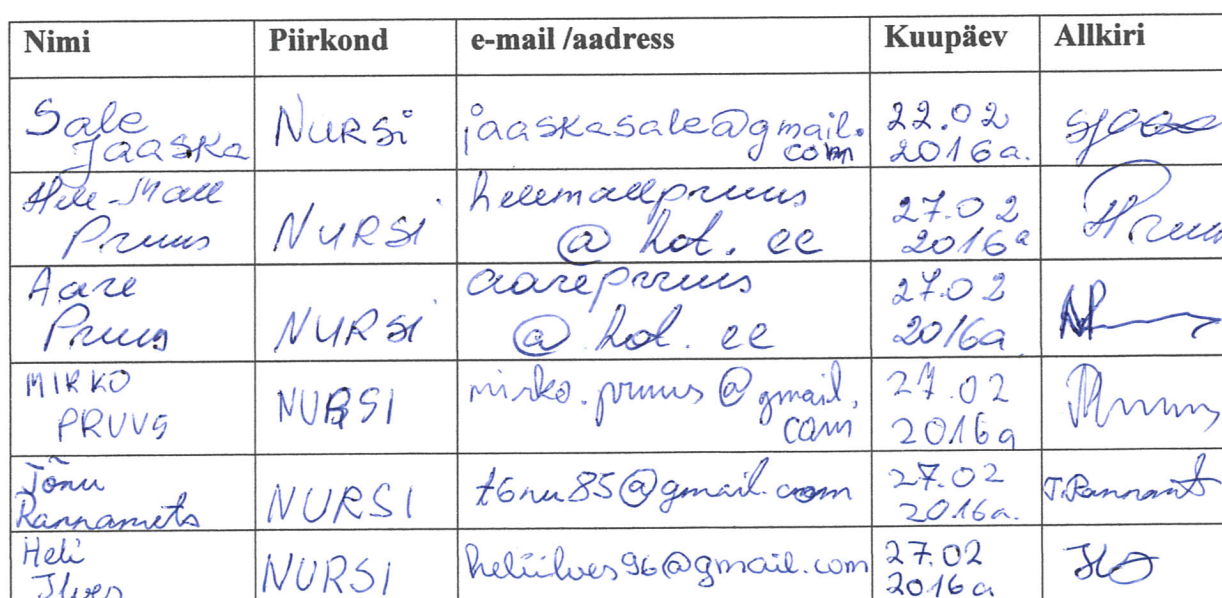 Nimi Piirkond e-mail /aadress Kuupäev Allkiri
Sale Jaaska NURSi jaaskasale@gmail.com 22.02 2016a.
Hele-Mall Pruus NURSi helemallpruus @ hot. ee 27.02 2016a
Aare Pruus NURSi aarepruus @ hot. ee 27.02 2016a
MIRKO PRUUS NURSI mirko.pruus@gmail.com 27.02 2016a
Tõnu Rannamets NURSI t6nu85@gmail.com 27.02 2016a. T.Rannamets
Heli Ilves NURSI heliilves96@gmail.com 27.02 2016a